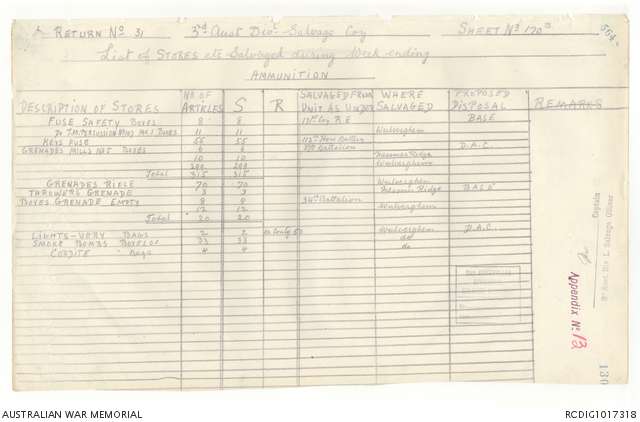 RETURN No 31 3rd Aust Divl Salvage Coy SHEET No 120
564
List of STORES etc Salvaged during Week ending
AMMUNITION
DESCRIPTION OF STORES No OF ARTICLES S R SALVAGED FROM UNIT AS UNDER WHERE SALVAGED PROPOSED DISPOSAL REMARKS
FUSE SAFETY BOXES 8 8 R.E BASE
Do PERCUSSION BOXES 11 11 Wulverghem
KEYS FUSE 55 55
GRENADES MILLS No5 BOXES 6 6 Battalion D.A.C.
10 10 Messines Ridge
200 200 Wulverghem
Total 315 315
GRENADES RIFLE 70 70 Wulverghem
THROWERS GRENADE 3 3 Messines Ridge BASE
BOXES GRENADE EMPTY 8 8 34th Battalion
12 12 Wulverghem
Total 20 20
LIGHTS-VERY BAGS 2 2 Wulverghem D.A.C.
SMOKE BOMBS BOXES OF 33 33 do
CORDITE " Bags 4 4 do
Captain
3rd Aust. Div l. Salvage Officer
Appendix No 12
130
AUSTRALIAN WAR MEMORIAL RCDIG1017318